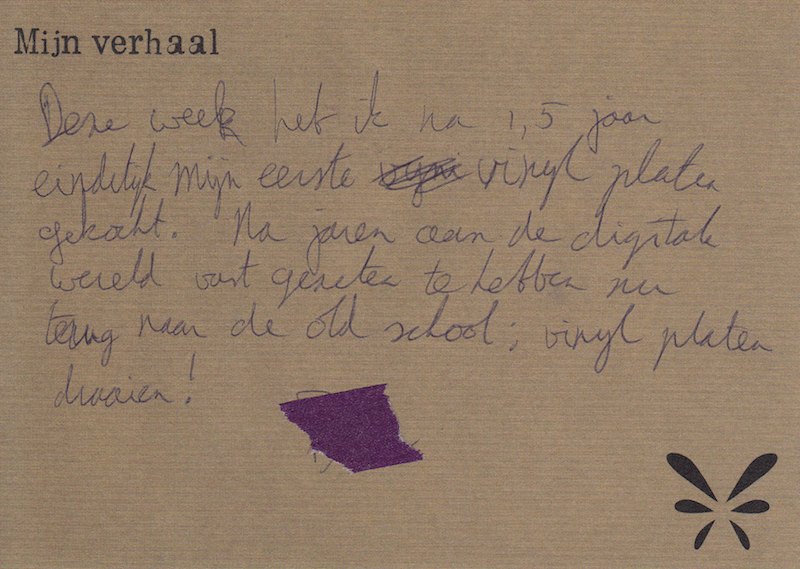 Mijn verhaal
Deze week heb ik na 1,5 jaar
eindelijk mijn eerste vinyl platen
gekocht. Na jaren aan de digitale
wereld vast gezeten te hebben nu
terug naar de old school; vinyl platen
draaien!